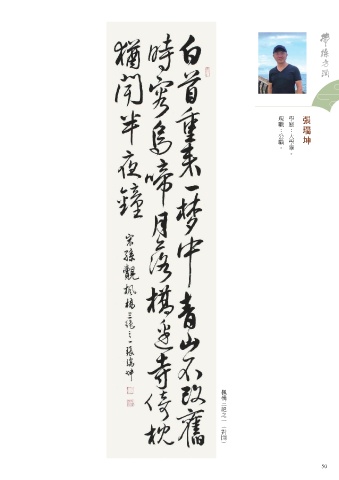 張瑞坤
白首重來一梦中青山不改舊
時容烏啼月落橋邊寺倚枕
猶聞半夜鐘
宋孫覿楓橋三絕之一張瑞坤
50